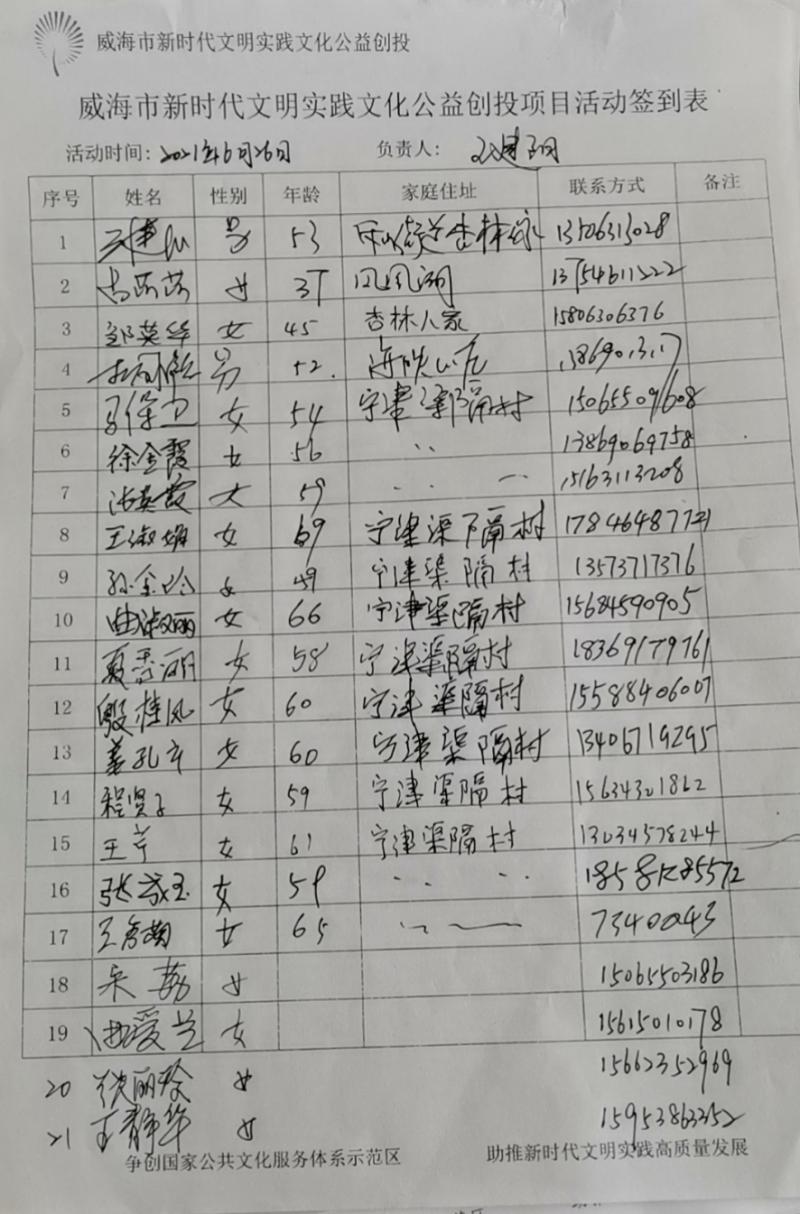 威海市新时代文明实践文化公益创投
威海市新时代文明实践文化公益创投项目活动签到表
活动时间：2021年6月26日 负责人：
序号 姓名 性别 年龄 家庭住址 联系方式 备注
1 男 53 13706313028
2 女 37 凤凰湖 13754611222
3 邹英华 女 45 杏林人家 15806306376
4 男 52
5 女 54 宁津渠隔村 15065509608
6 徐金霞 女 56 〃 13869069758
7 女 59 〃 〃 15163113208
8 王淑娟 女 69 宁津渠隔村
9 孙金玲 女 49 宁津渠隔村 13573717376
10 曲淑丽 女 66 宁津渠隔村 15684590905
11 女 58 宁津渠隔村 18369179761
12 殷桂凤 女 60 宁津渠隔村 15588406007
13 姜孔 女 60 宁津渠隔村 13406719295
14 程贤子 女 59 宁津渠隔村 15634301862
15 王芹 女 61 宁津渠隔村 13034578244
16 张淑玉 女 59 〃 〃
17 女 65 〃 7340043
18 宋荔 女 15065503186
19 曲爱兰 女 15615010178
20 女 15662352969
21 王静华 女 15953863252
争创国家公共文化服务体系示范区 助推新时代文明实践高质量发展